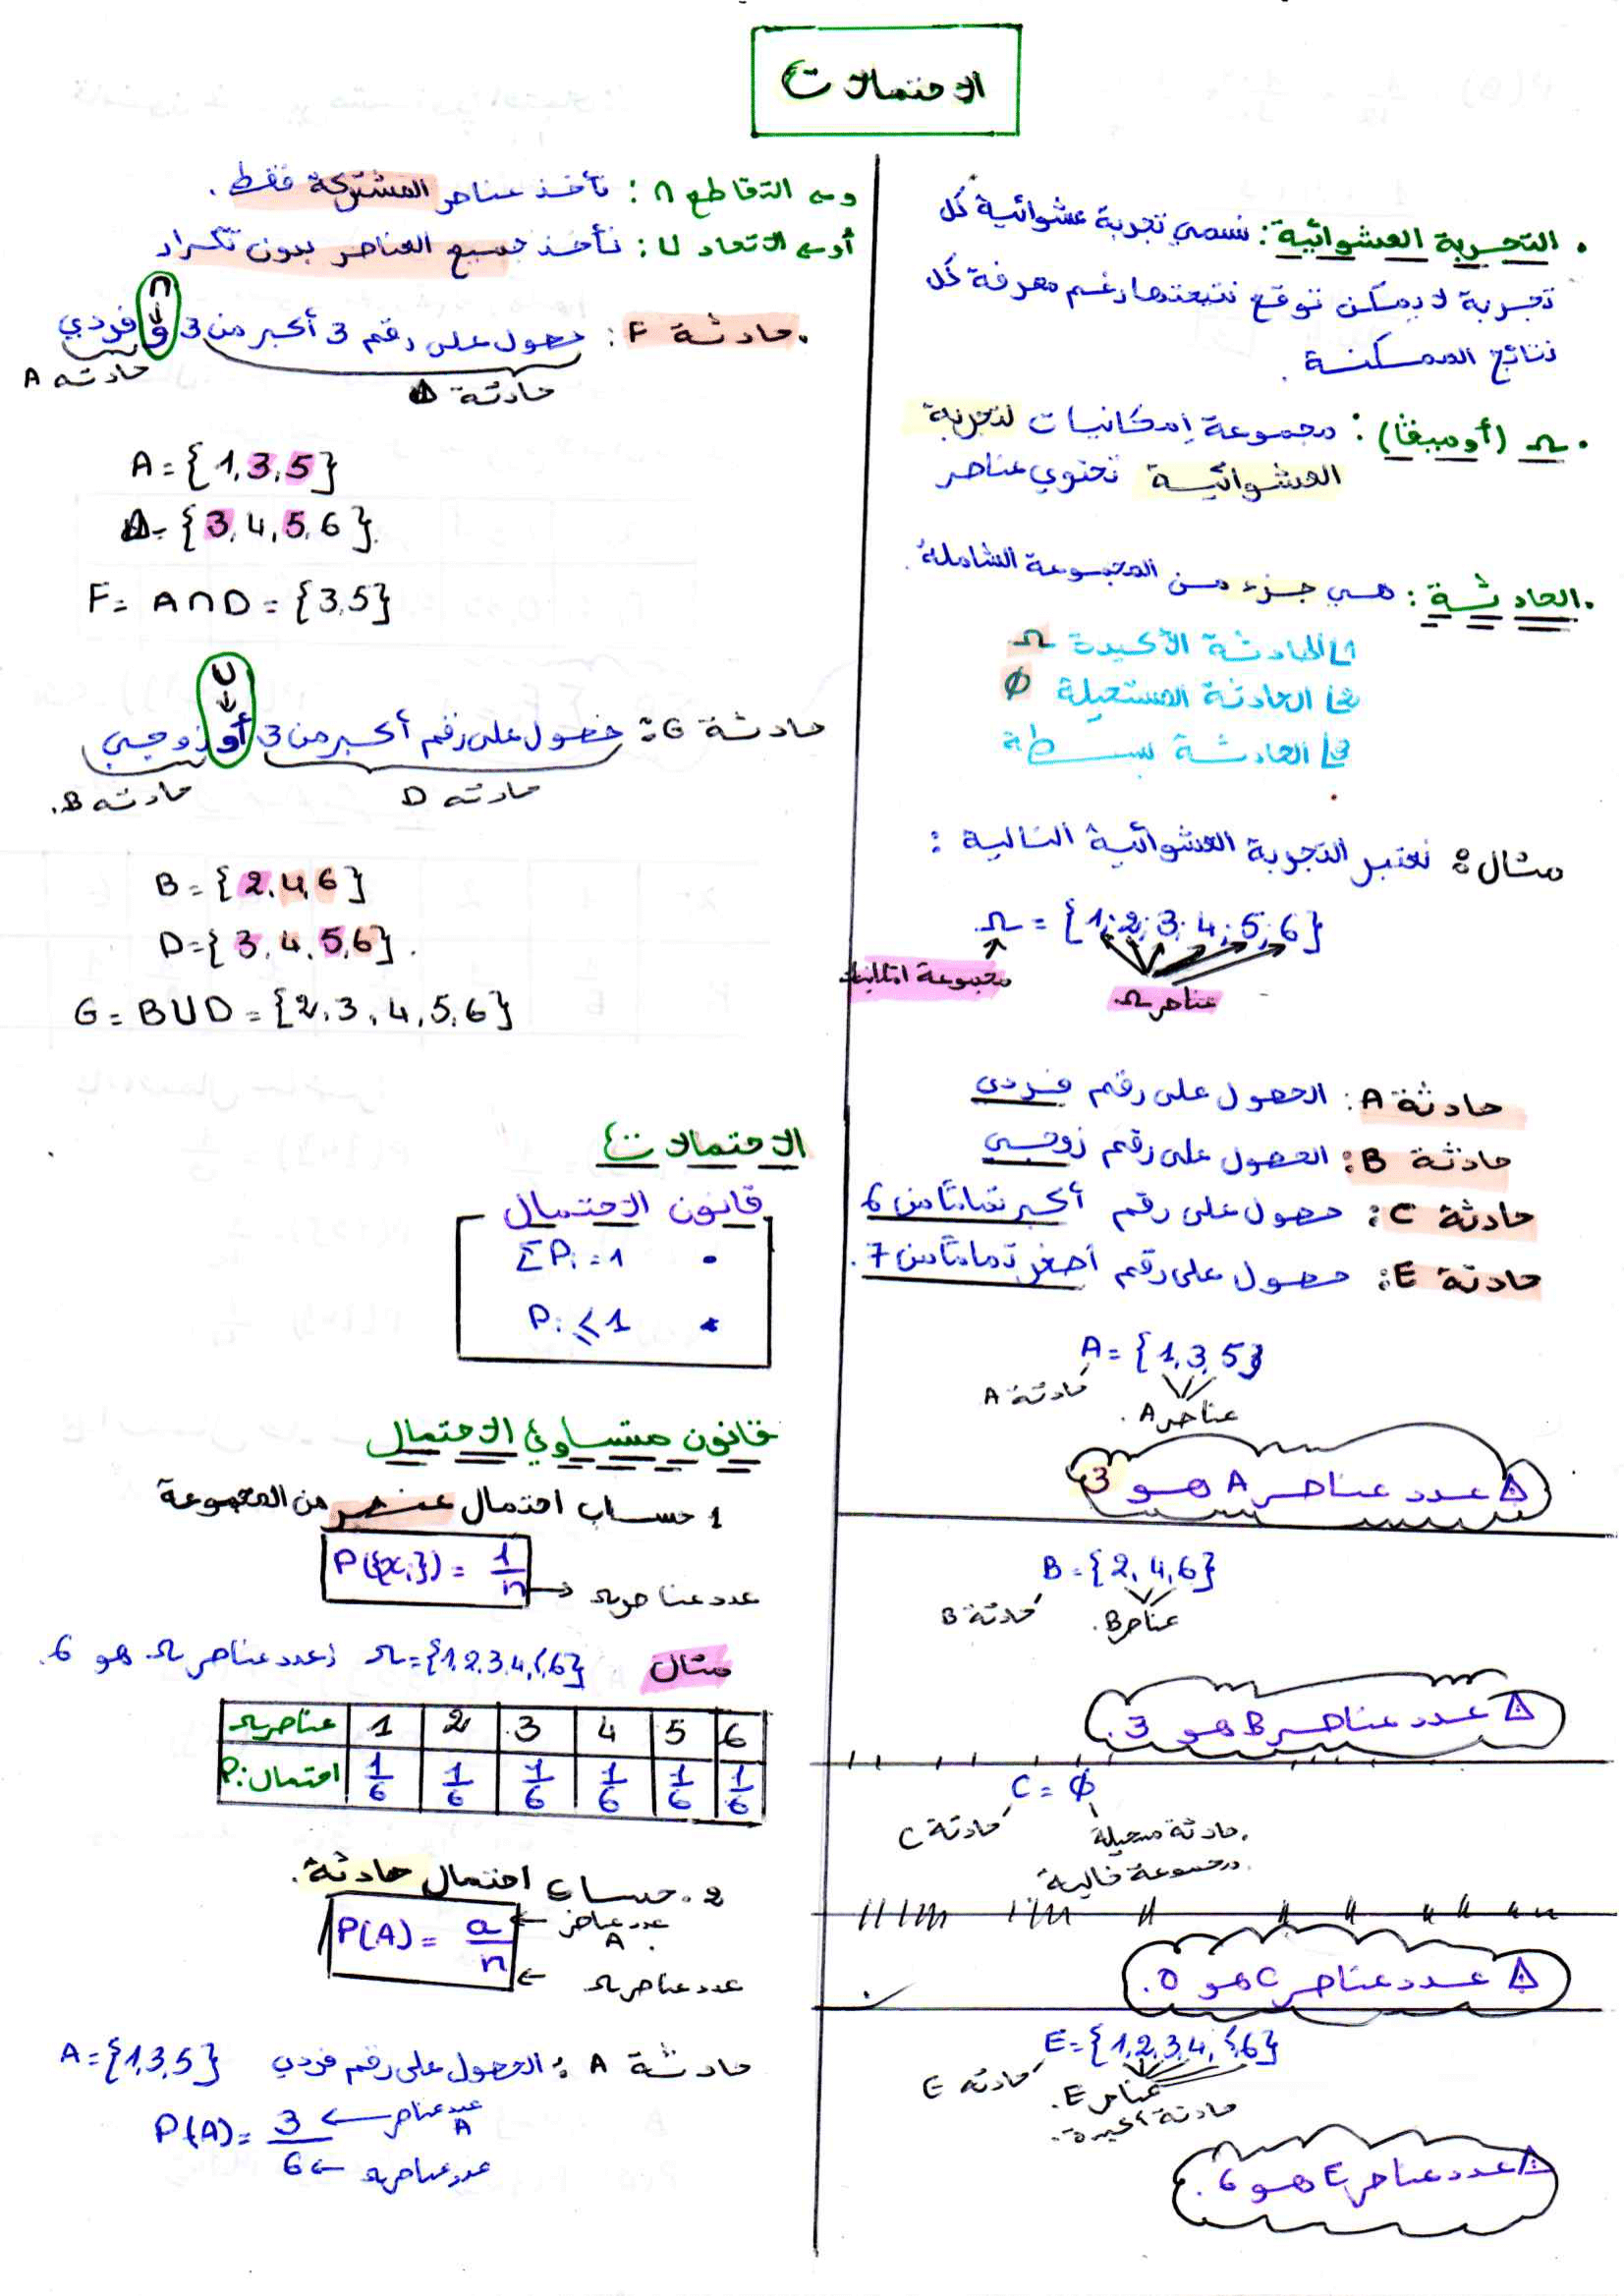 الاحتمالات
• التجربة العشوائية: نسمي تجربة عشوائية كل
تجربة لا يمكن توقع نتيجتها رغم معرفة كل
نتائج الممكنة.
• Ω (أوميغا): مجموعة إمكانيات لتجربة
العشوائية تحتوي عناصر
• الحادثة: هي جزء من المجموعة الشاملة.
1/ الحادثة الأكيدة Ω
2/ الحادثة المستحيلة ∅
3/ الحادثة بسيطة
مثال: نعتبر التجربة العشوائية التالية:
Ω = {1; 2; 3; 4; 5; 6}
عناصر Ω
حادثة A: الحصول على رقم فردي
حادثة B: الحصول على رقم زوجي
حادثة C: حصول على رقم أكبر تماما من 6
حادثة E: حصول على رقم أصغر تماما من 7.
A = {1, 3, 5}
حادثة A
عناصر A.
⚠ عدد عناصر A هو 3
B = {2, 4, 6}
حادثة B
عناصر B.
⚠ عدد عناصر B هو 3.
C = ∅
حادثة C
حادثة مستحيلة.
مجموعة خالية.
⚠ عدد عناصر C هو 0.
E = {1, 2, 3, 4, 5, 6}
حادثة E
عناصر E.
حادثة أكيدة.
⚠ عدد عناصر E هو 6.
و → التقاطع ∩: نأخذ عناصر المشتركة فقط.
أو → الاتحاد U: نأخذ جميع العناصر بدون تكرار
∩
• حادثة F: حصول على رقم 3 أكبر من 3 و فردي
حادثة D
حادثة A
A = {1, 3, 5}
D = {3, 4, 5, 6}.
F = A ∩ D = {3, 5}
U
حادثة G: حصول على رقم أكبر من 3 أو زوجي
حادثة D
حادثة B.
B = {2, 4, 6}
D = {3, 4, 5, 6}.
G = B U D = {2, 3, 4, 5, 6}
الاحتمالات
قانون الاحتمال
• ΣPi = 1
• Pi ≤ 1
قانون متساوي الاحتمال
1 حساب احتمال عنصر من المجموعة
P({xi}) = 1/n
عدد عناصر Ω
مثال Ω = {1, 2, 3, 4, 5, 6} عدد عناصر Ω هو 6.
عناصر Ω 1 2 3 4 5 6
احتمال Pi 1/6 1/6 1/6 1/6 1/6 1/6
2. حساب احتمال حادثة.
P(A) = a/n
عدد عناصر A.
عدد عناصر Ω
حادثة A: الحصول على رقم فردي A = {1, 3, 5}
P(A) = 3/6
عدد عناصر A
عدد عناصر Ω